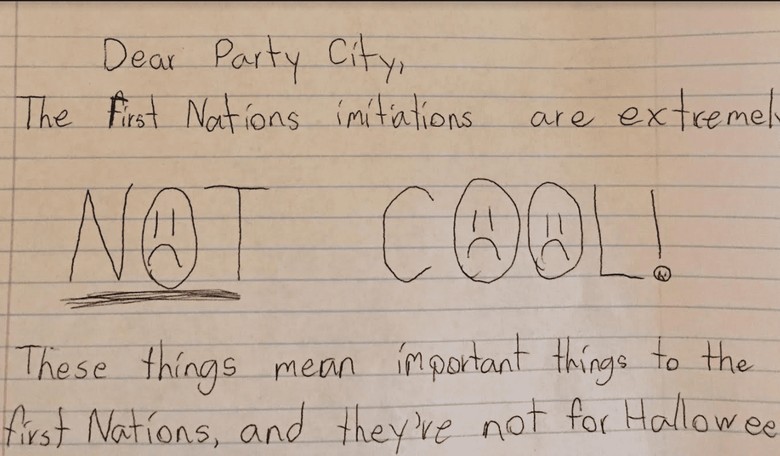 Dear Party City,
The first Nations imitiations are extremely
NOT COOL!
These things mean important things to the
first Nations, and they're not for Hallowee